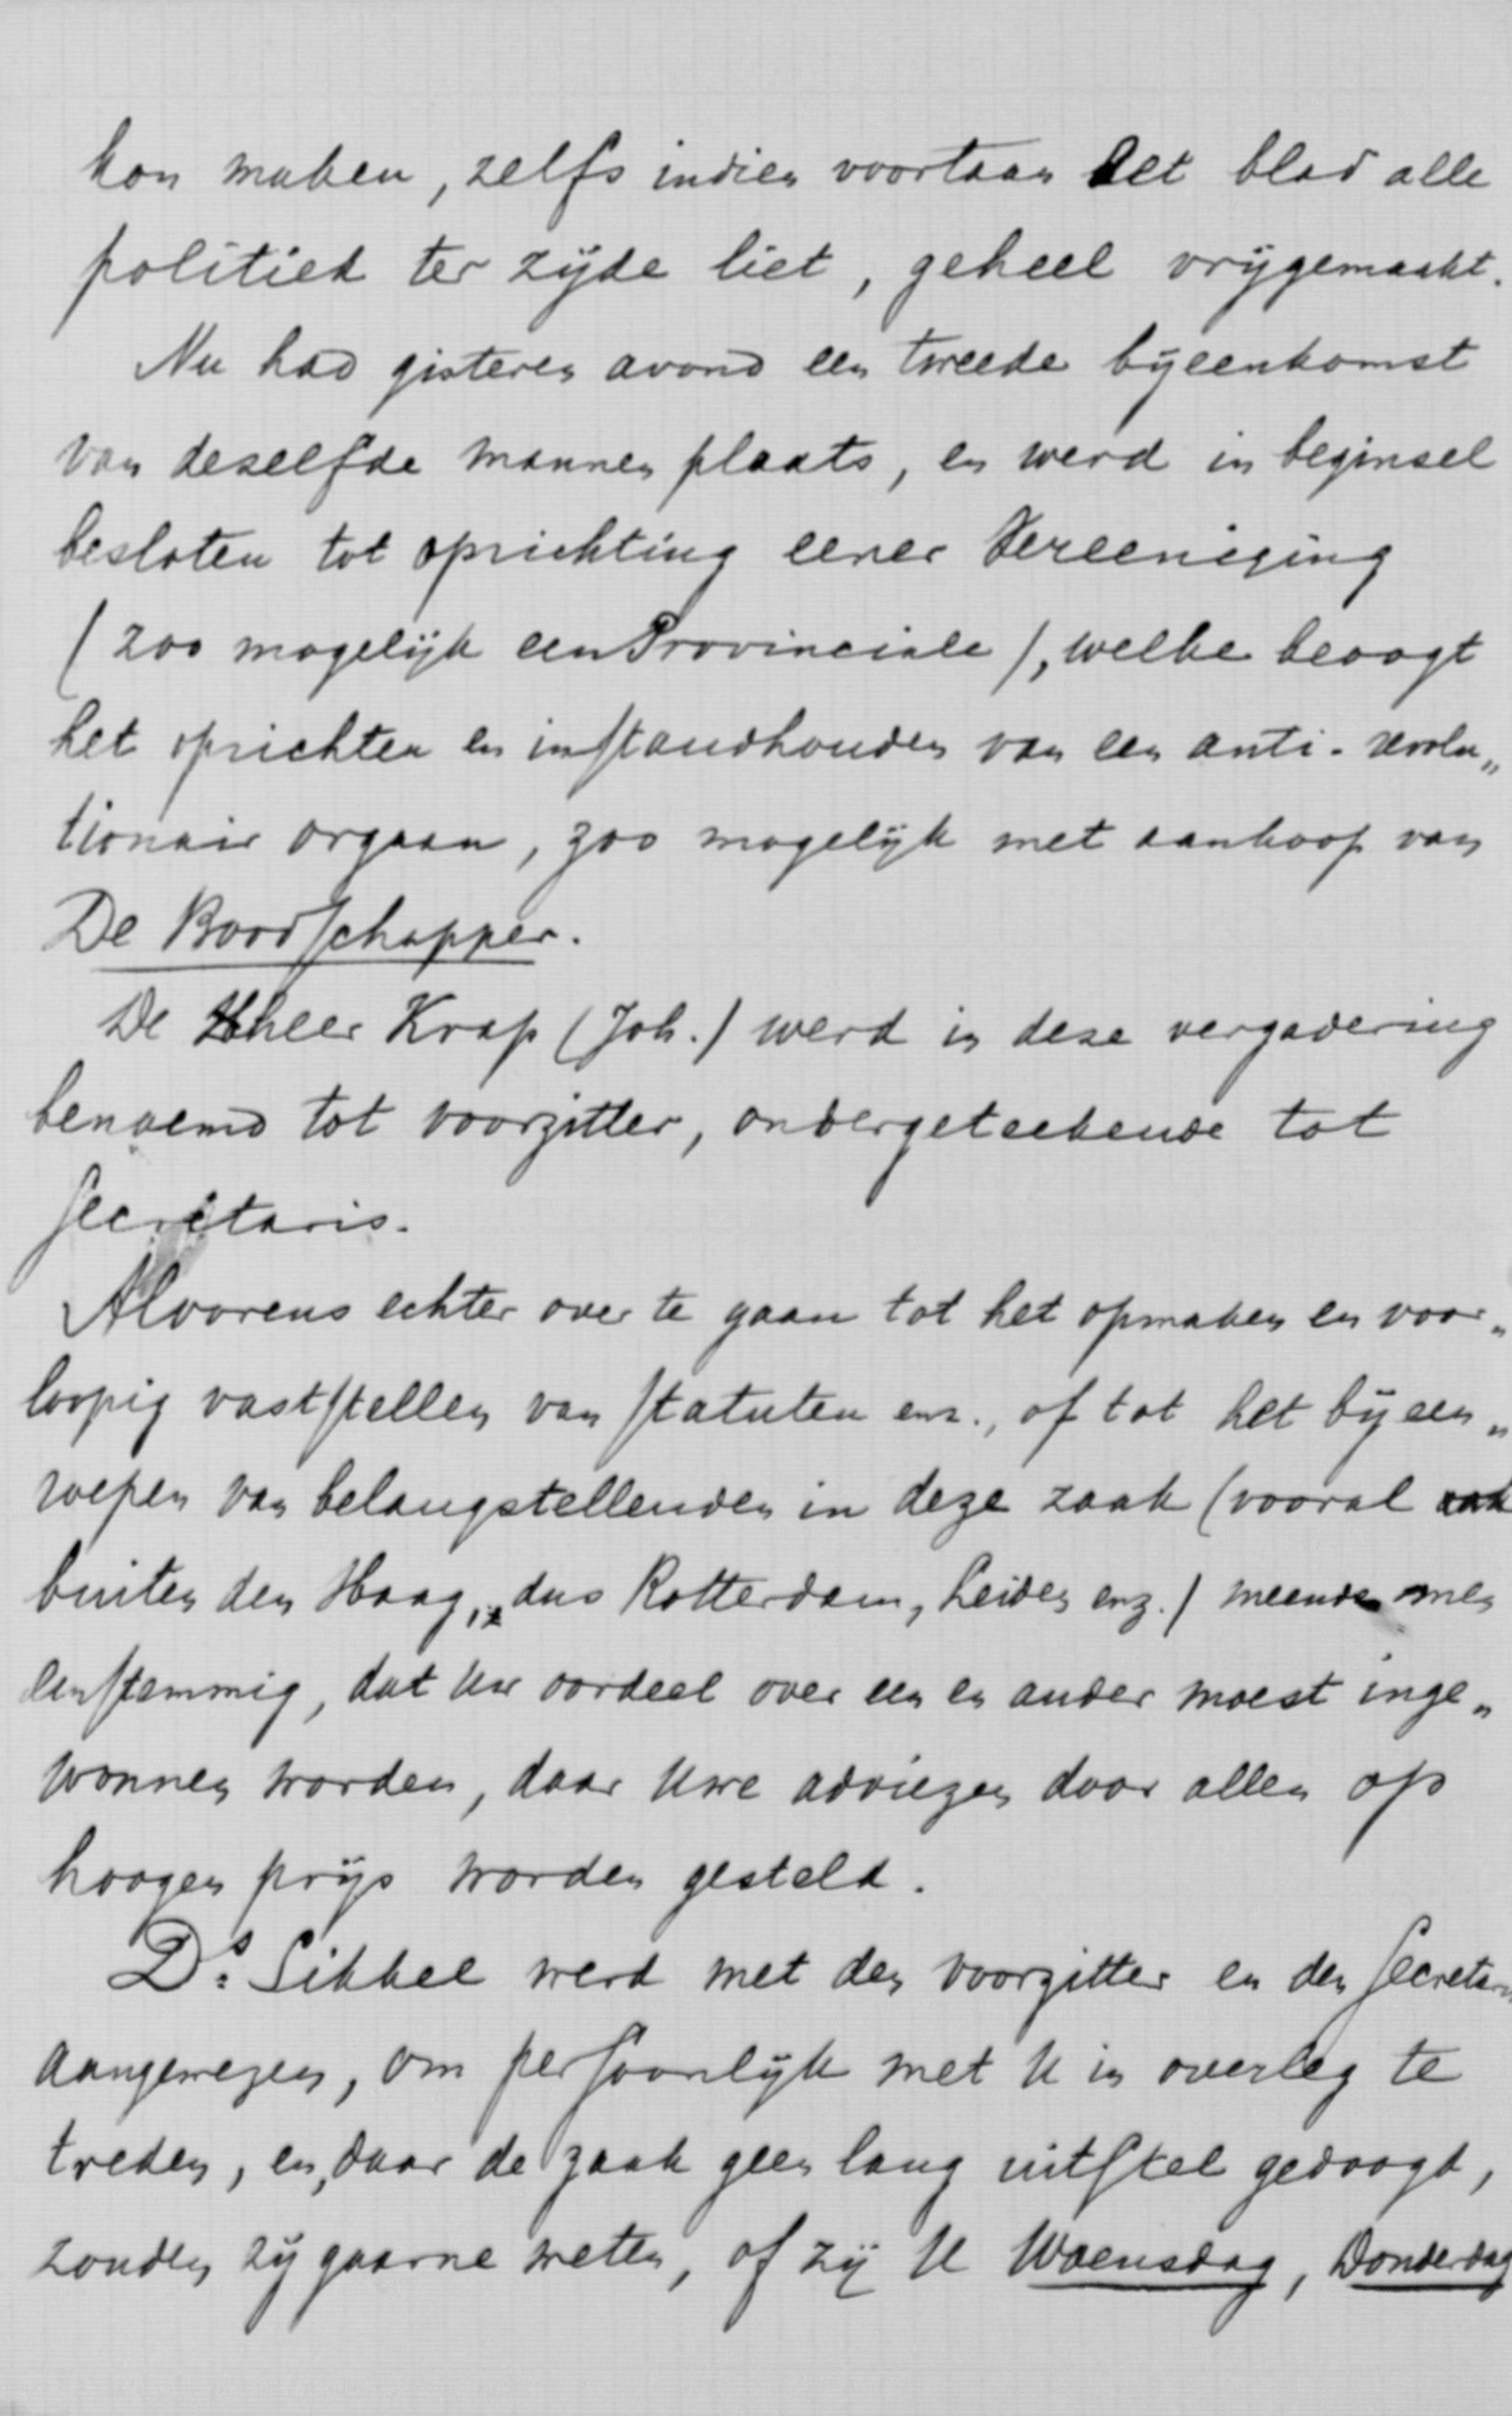 kon maken, zelfs indien voortaan het blad alle
politiek ter zijde liet, geheel vrijgemaakt.
Nu had gisteren avond een tweede bijeenkomst
van deselfde mannen plaats, en werd in beginsel
besloten tot oprichting eener Vereeniging
(zoo mogelijk een Provinciale), welke beoogt
het oprichten en instandhouden van een anti-revolu„
tionair orgaan, zoo mogelijk met aankoop van
De Boodschapper.
De heer Krap (Joh.) werd in deze vergadering
benoemd tot voorzitter, ondergeteekende tot
secretaris.
Alvorens echter over te gaan tot het opmaken en voor„
loopig vaststellen van statuten enz., of tot het bijeen„
roepen van belangstellenden in deze zaak (vooral ook
buiten den Haag, dus Rotterdam, Leiden enz.) meende men
eenstemmig, dat Uw oordeel over een en ander moest inge„
wonnen worden, daar Uwe adviezen door allen op
hoogen prijs worden gesteld.
Ds. Sikkel werd met den voorzitter en den secretaris
aangewezen, om persoonlijk met U in overleg te
treden, en, daar de zaak geen lang uitstel gedoogt,
zouden zij gaarne weten, of zij U Woensdag, Donderdag